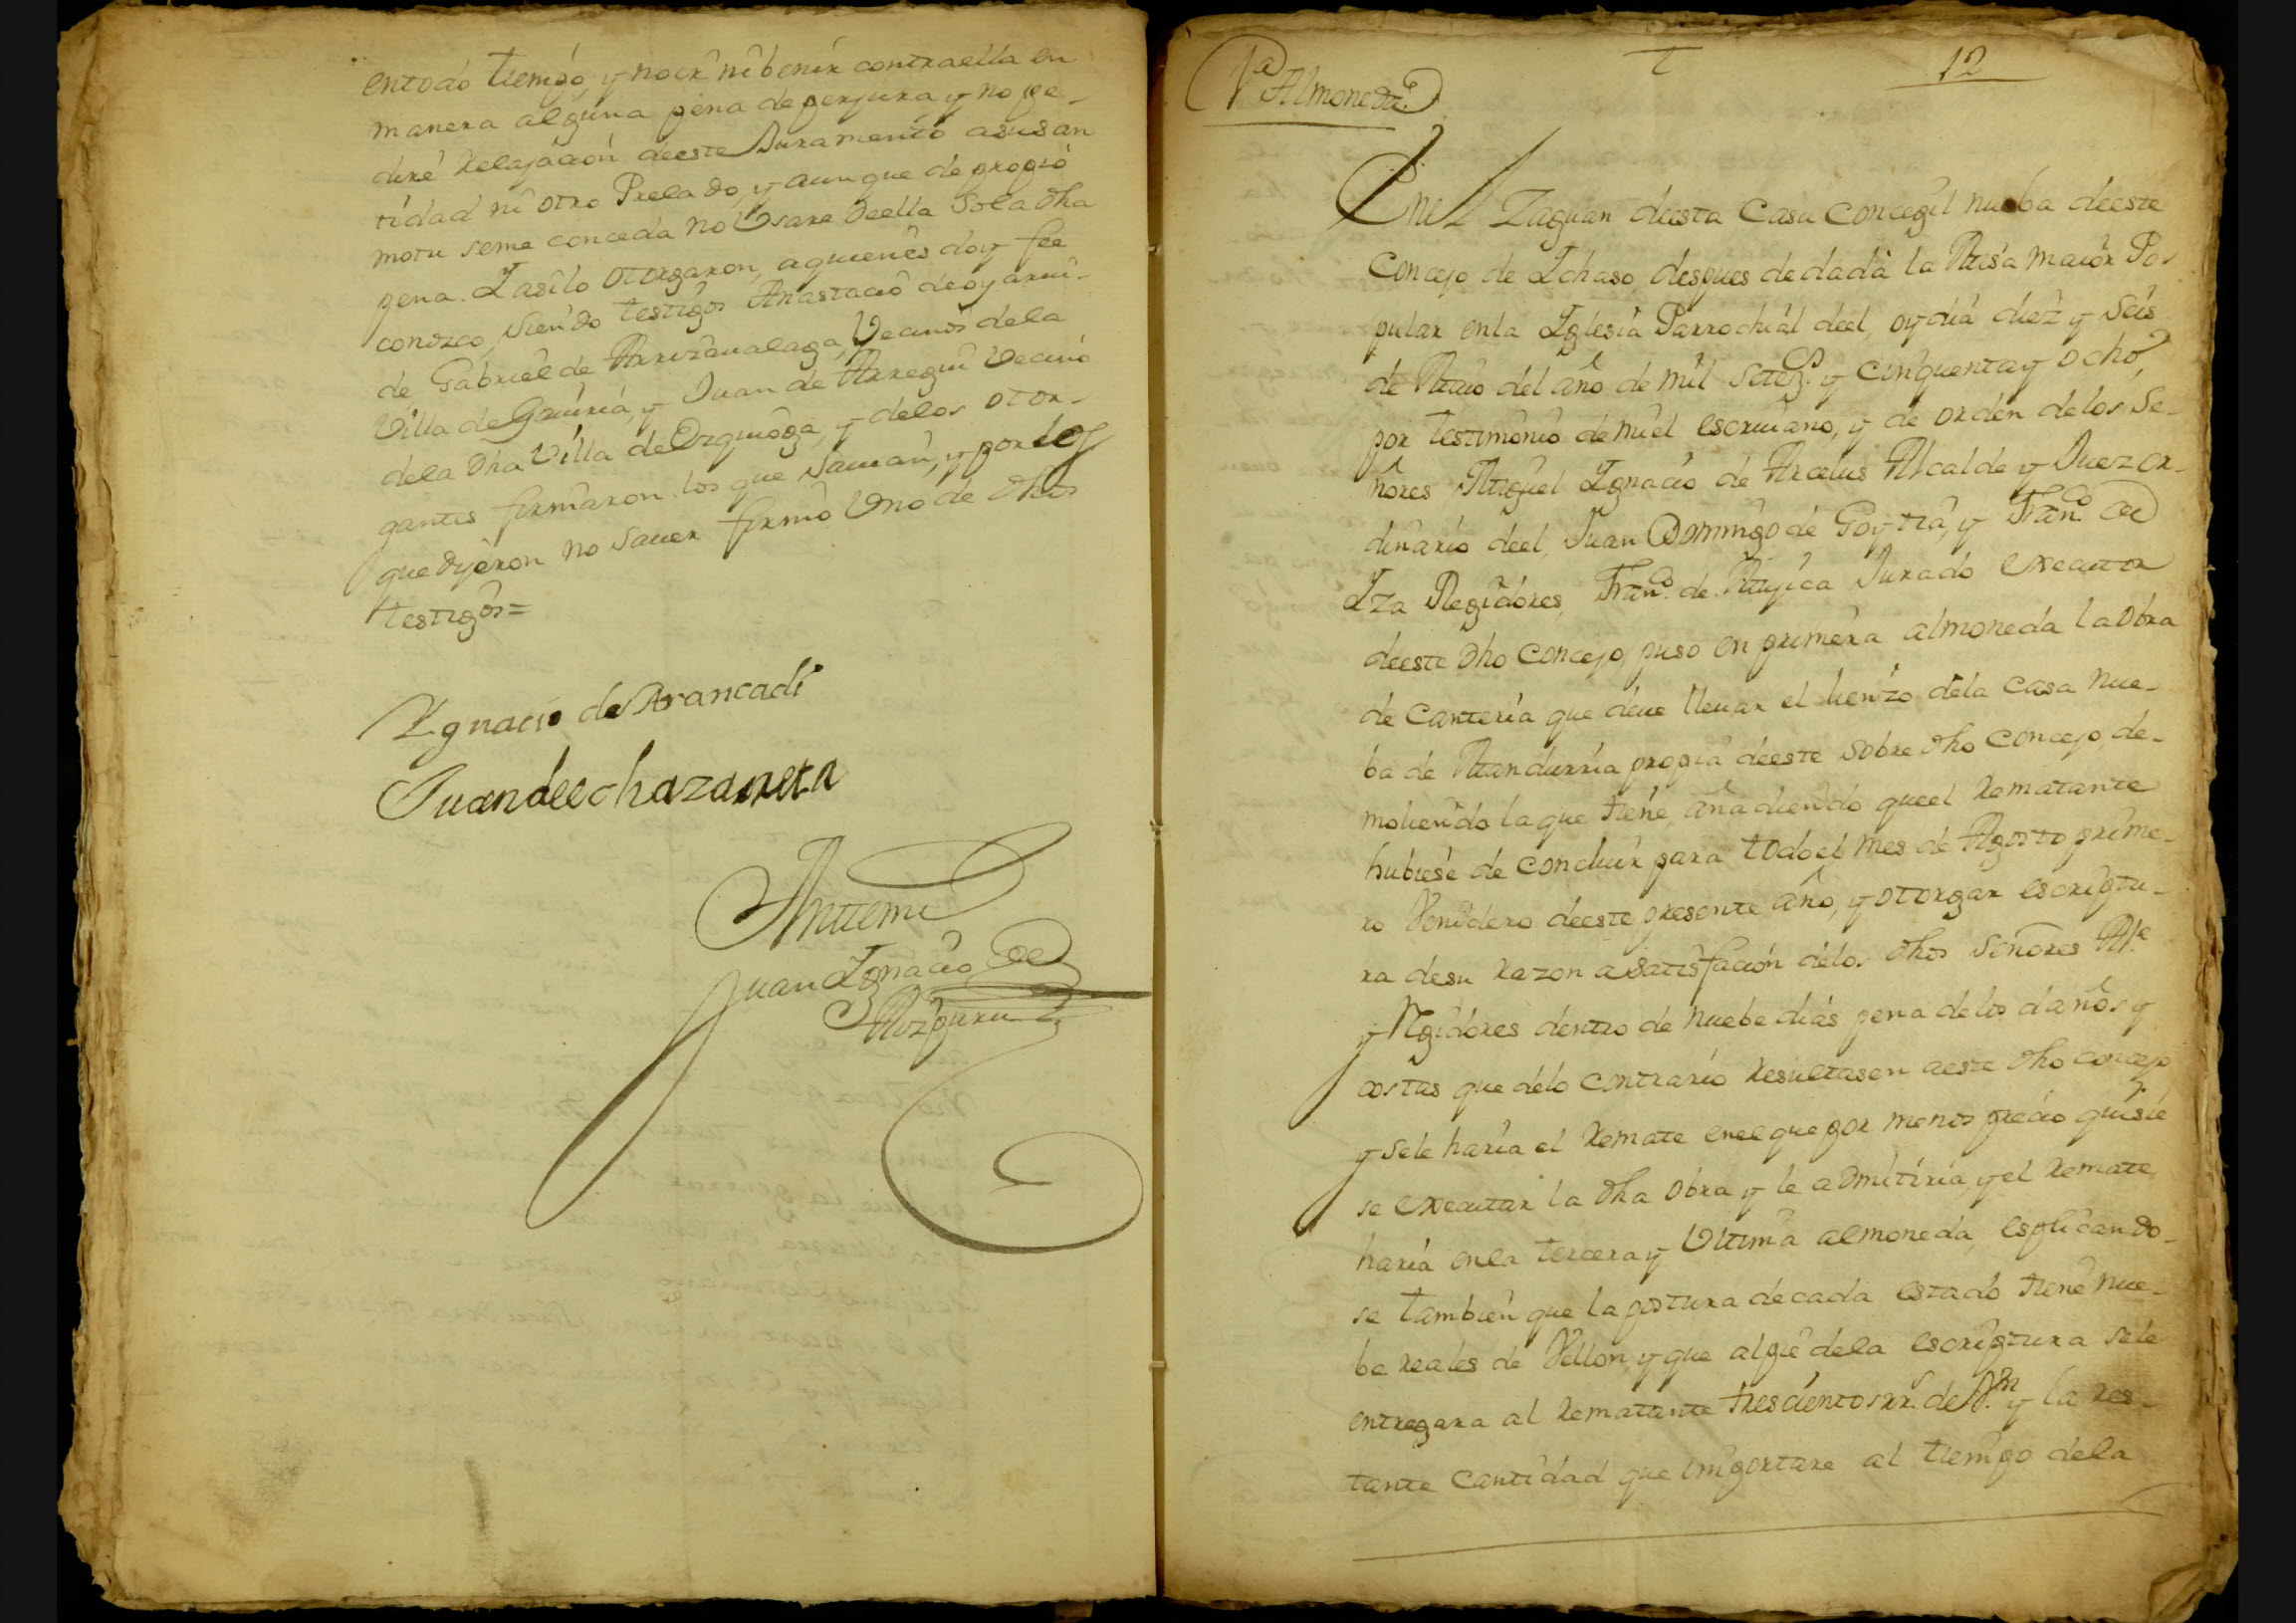 entodo tiempo, y no ir ni benir contraella en
manera alguna pena de perjura y no pe-
diré relajacion deeste Juramento asusan
tidad ni otro Prelado, y aunque de propio
motu seme conceda no Usare deella so la dha
pena. Y asilo otorgaron, aquienes doy fee
conozco, siendo testigos Anastacio de oyarui-
de, Gabriel de Arrizaualaga, Vecinos dela
Villa de Gauiria, y Juan de Arregui Vecino
dela dha Villa de Ezquioga, y delos otor-
gantes firmaron los que sauian, y por los
que dijeron no sauer firmó Uno de dhos
testigos=
Ygnacio de Arancadi
Juan de echazarreta
Anttemi
Juan Ygnacio de
1ª Almoneda.
12
Enel Zaguan deesta Casa Concegil nueba deeste
Concejo de Ychaso, despues de dada la Misa maior Po-
pular enla Yglesia Parrochial deel, oy dia diez y seis
de Maio del año de mil setezs. y cinquenta y ocho,
por testimonio de mi el escriuano, y de orden delos Se-
ñores Miguel Ygnacio de Arcelus Alcalde y Juez or-
dinario deel, Juan Domingo de Goytia, y Franco. de
Yza Regidores, Franco. de Mujica Jurado executor
deeste dho Concejo, puso en primera almoneda la obra
de Canteria que deue lleuar el lienzo dela casa nue-
ba de Mandurria propia deeste sobre dho Concejo, de-
moliendo la que tiene, añadiendo queel rematante
hubiese de concluir para todo el mes de Agosto prime-
ro Venidero deeste presente año, y otorgar escriptu-
ra desu razon a satisfacion delos dhos Señores Alce.
y Regidores dentro de nuebe dias pena delos daños y
costas que delo contrario resultasen aeste dho concejo
y sele haria el remate enelque por menos precio quisie
se executar la dha obra y le admitiria, y el remate
haria enla tercera y Ultima almoneda, esplicando-
se tambien que la postura de cada estado tiene nue-
be reales de Vellon, y que alpie dela escriptura sele
entregara al rematante trescientos rrs. de Vn. y la res-
tante cantidad que importare al tiempo dela